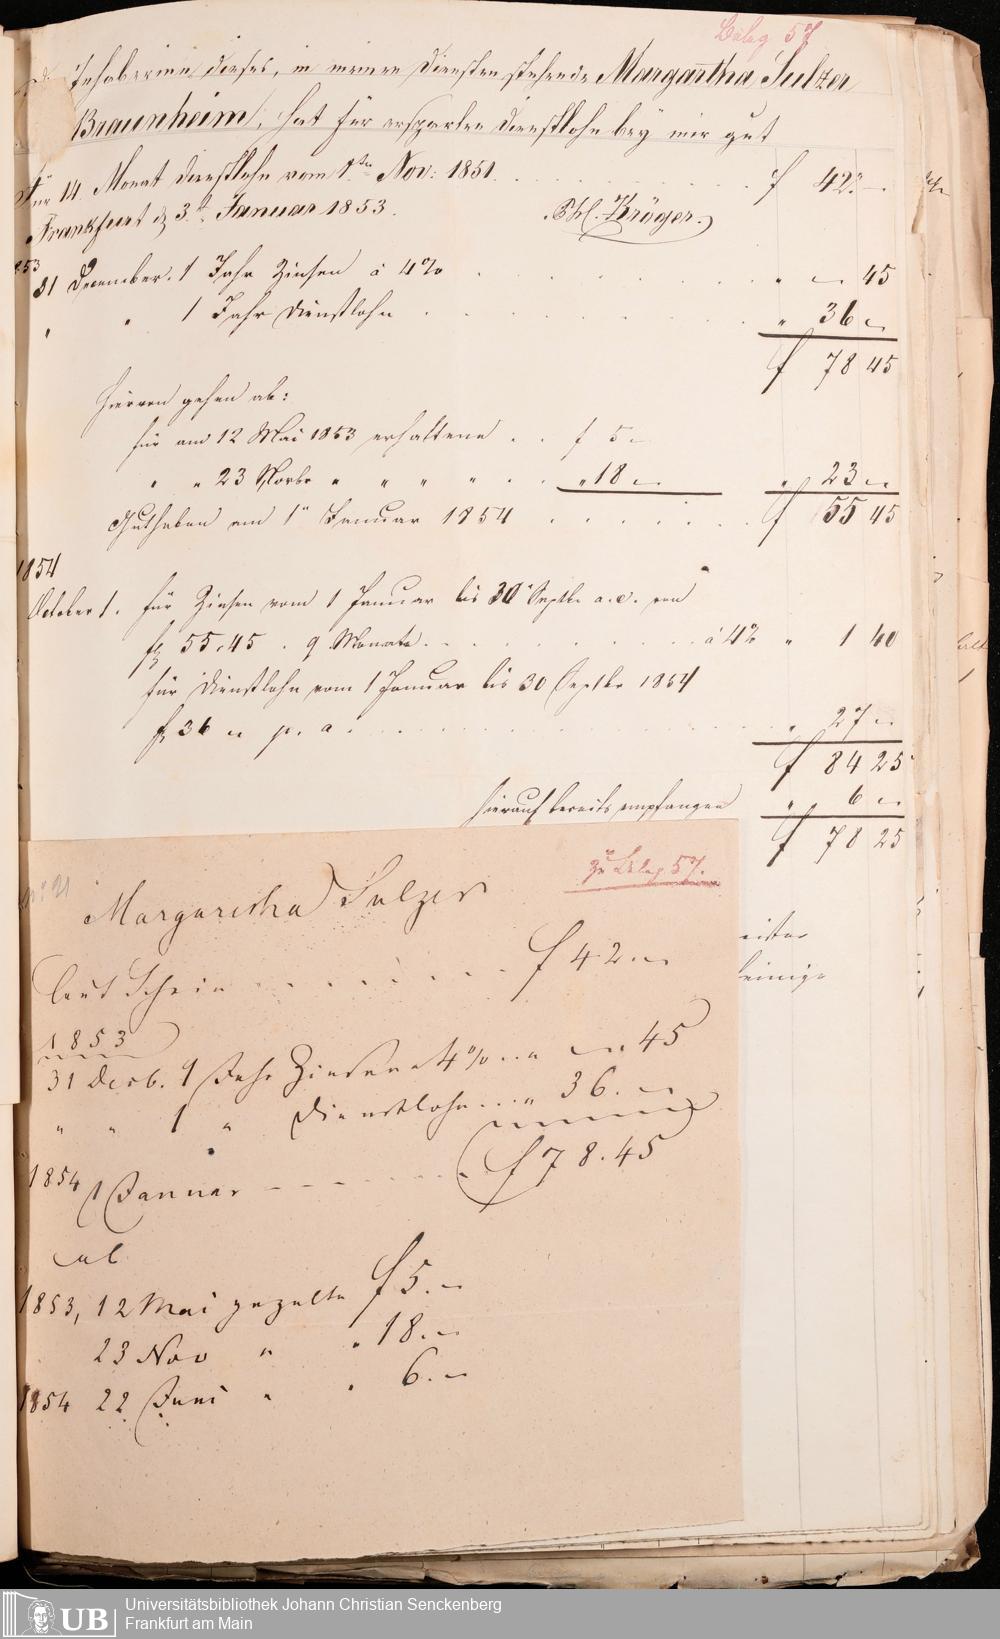 Beleg 57
Inhaberinn dieses, in meinen Diensten stehende Margaretha Sulzer
Braunheim, hat für ersparten Dienstlohn bey mir gut
Für 14 Monat Dienstlohn vom 1ten Nov: 1851 . . . . f 42.–
Frankfurt d 3t Januar 1853. Phl. Kröger.
1853
31 December. 1 Jahr Zinsen à 4% . . . . " – 45
" " 1 Jahr Dienstlohn . . . . " 36 –
f 78 45
Hiervon gehen ab:
für am 12 Mai 1853 erhaltene . . f 5 –
" " 23 Novbr " " " " . . " 18 – " 23 –
Guthaben am 1" Januar 1854 . . . . f 55 45
1854
October 1. für Zinsen vom 1 Januar bis 30 Septbr a. c. von
f 55.45 . 9 Monate . . . . à 4% " 1 40
für Dienstlohn vom 1 Januar bis 30 Septbr 1854
f 36 – p. a . . . . " 27 –
f 84 25
hierauf bereits empfangen " 6 –
f 78 25
zu Beleg 57.
Margaretha Sulzer
laut Schein . . . . f 42. –
1853
31 Decb. 1 Jahr Zinsen a 4% . . " – . 45
" " 1 " Dienstlohn . . . " 36. –
1854 1 Januar – – – – f 78.45
ab
1853, 12 Mai gezalte f 5. –
23 Nov " " 18. –
1854 22 Juni " " 6. –
UB
Universitätsbibliothek Johann Christian Senckenberg
Frankfurt am Main